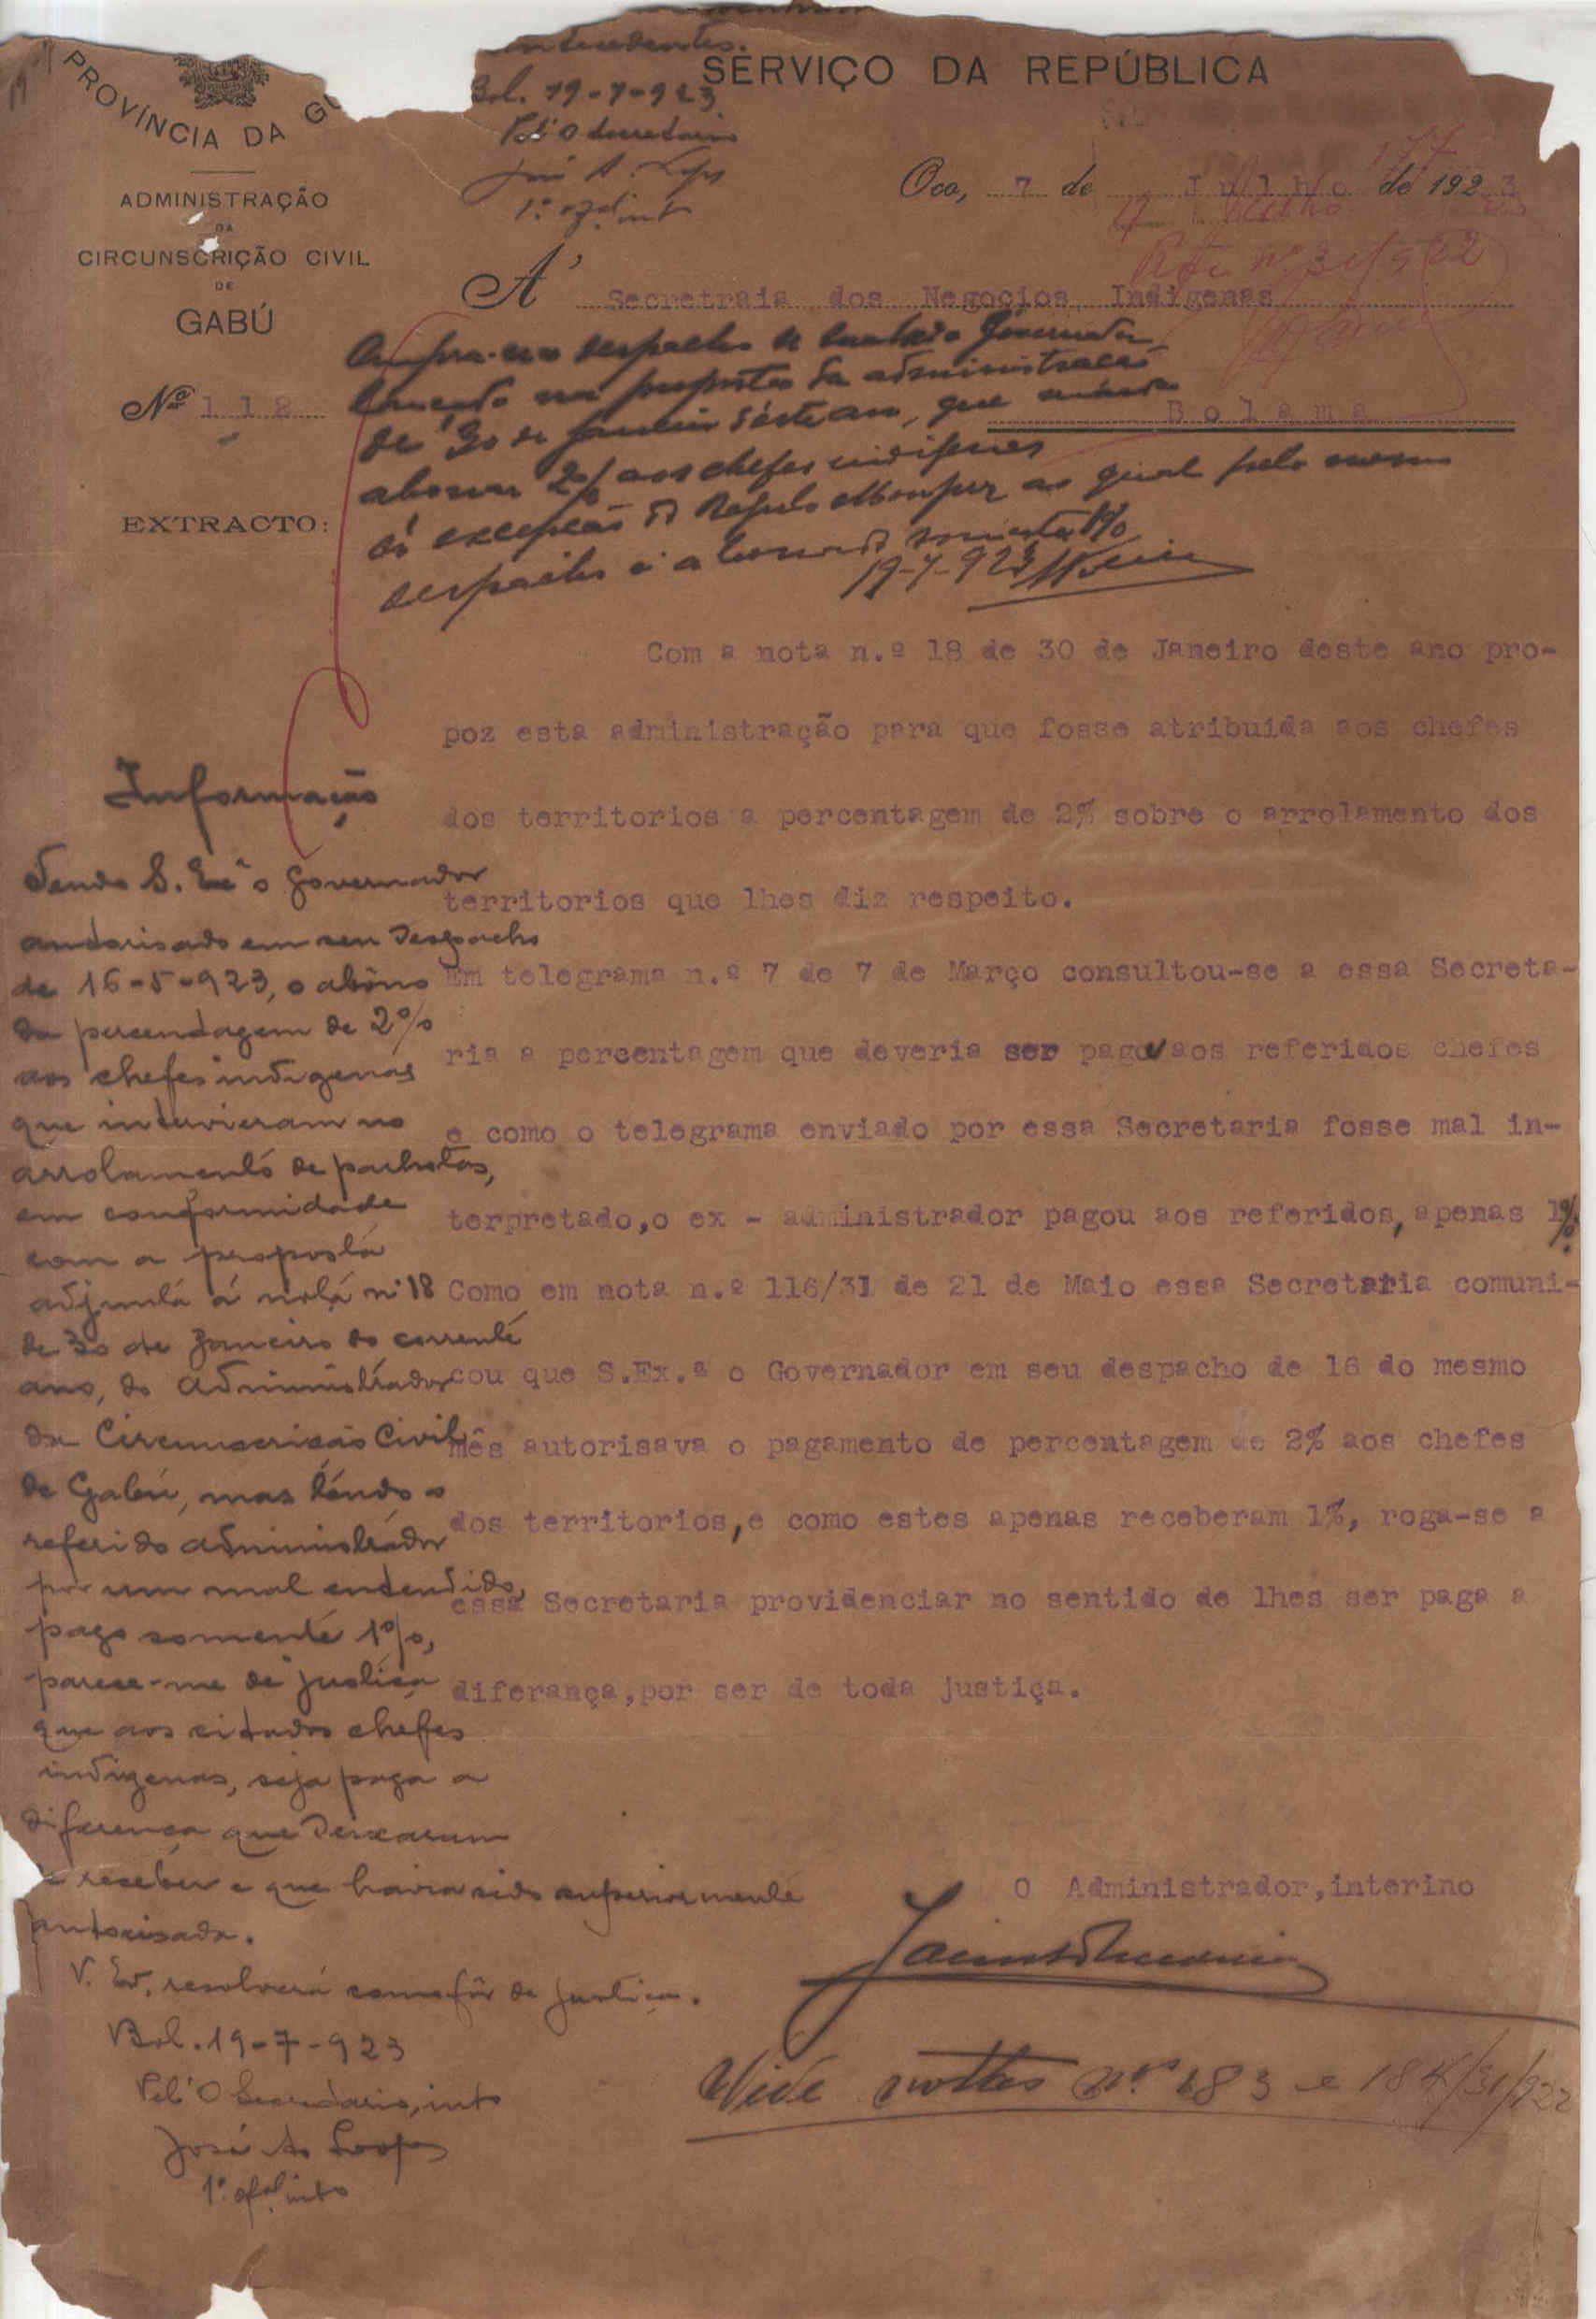 PROVÍNCIA DA GU
ADMINISTRAÇÃO
DA
CIRCUNSCRIÇÃO CIVIL
DE
GABÚ
Nº 112
EXTRACTO:
antecedentes.
Bol. 19-7-923
Pel'O Secretario
José A. Lopes
1º. of.al int.º
SERVIÇO DA REPÚBLICA
177
Oco, 7 de Julho de 1923
Á Secretraia dos Negocios Indigenas
Bolama
Cumpra-se o despacho de Governador
lançado na proposta da administração
de 30 de Janeiro dêste ano, que manda
abonar 2% aos chefes indigenas
á excepção do Regulo Monjur ao qual pelo mesmo
despacho é abonado somente 1%
19-7-923
Com a nota n.º 18 de 30 de Janeiro deste ano pro-
poz esta administração para que fosse atribuida aos chefes
dos territorios a percentagem de 2% sobre o arrolamento dos
territorios que lhes diz respeito.
Em telegrama n.º 7 de 7 de Março consultou-se a essa Secreta-
ria a percentagem que deveria ser paga aos referidos chefes
e como o telegrama enviado por essa Secretaria fosse mal in-
terpretado,o ex - administrador pagou aos referidos, apenas 1%.
Como em nota n.º 116/31 de 21 de Maio essa Secretaria comuni-
cou que S.Ex.ª o Governador em seu despacho de 16 do mesmo
mês autorisava o pagamento de percentagem de 2% aos chefes
dos territorios,e como estes apenas receberam 1%, roga-se a
essa Secretaria providenciar no sentido de lhes ser paga a
diferança,por ser de toda justiça.
O Administrador,interino
Vide nottas nºs 183 e 184/31/922
Informação
Tendo S. Exª o Governador
autorisado em seu Despacho
de 16-5-923, o abôno
da percentagem de 2%
aos chefes indigenas
que intervieram no
arrolamento de palhotas,
em conformidade
com a proposta
adjunta á nota nº 18
de 30 de Janeiro do corrente
ano, do Administrador
da Circunscrição Civil
de Gabú, mas tendo o
referido administrador
por um mal entendido,
pago somente 1%,
parece-me de justiça
que aos citados chefes
indigenas, seja paga a
diferença que deixaram
de receber e que havia sido superiormente
autorisada.
V. Exª. resolverá como fôr de justiça.
Bol. 19-7-923
Pel'O Secretario, intº
José A. Lopes
1º. of.al intº